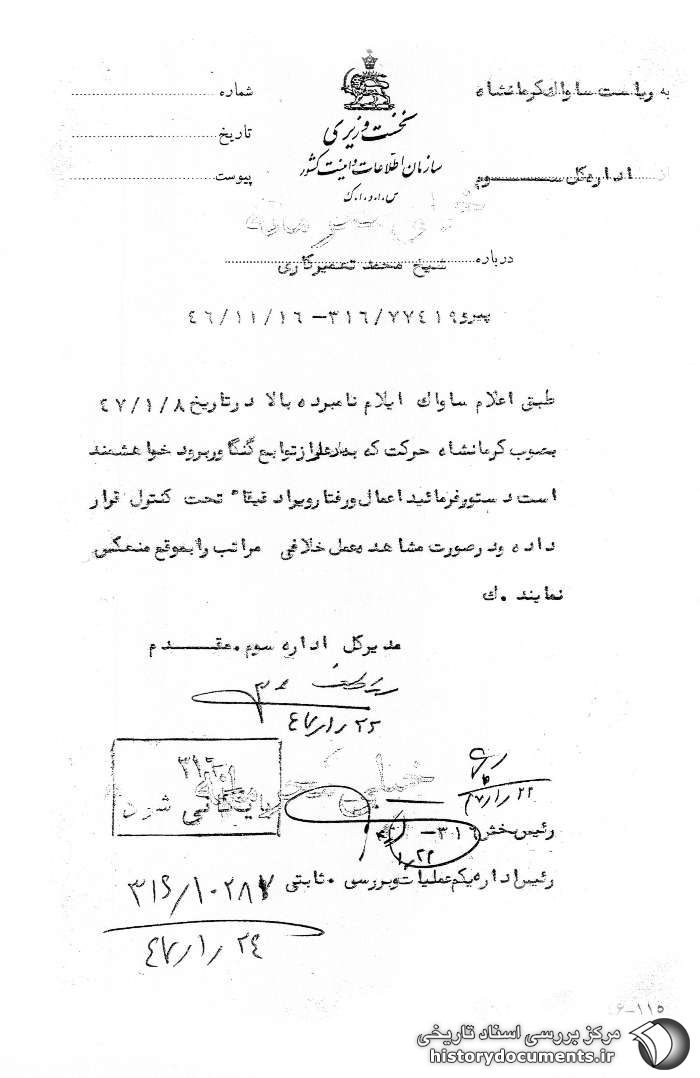 به ریاست ساواک کرمانشاه
از اداره کل ســـوم
نخست وزیری
سازمان اطلاعات و امنیت کشور
س.ا.و.ا.ک
شماره
تاریخ
پیوست
درباره شیخ محمد تعمیرکاری
پیرو ۳۱۶/۷۷۴۱۹ – ٤٦/۱۱/۱٦
طبق اعلام ساواک ایلام نامبرده بالا در تاریخ ٤۷/۱/۸
بصوب کرمانشاه حرکت که از توابع کنگاور برود خواهشمند
است دستور فرمائید اعمال و رفتار ویرا دقیقا" تحت کنترل قرار
داده و در صورت مشاهده عمل خلافی مراتب را بموقع منعکس
نمایند . ك
مدیرکل اداره سوم . مقـــدم
٤۷/۱/۲۲
خیلی محرمانه
۳۱٦
بایگانی شود
٤۷/۱/۲۲
رئیس بخش ۳۱٦-
۱/۲۲
رئیس اداره یکم عملیات و بررسی . ثابتی
۳۱۶/۱۰۲۸۷
٤۷/۱/۲٤
۶-۱۱۵
مرکز بررسی اسناد تاریخی
historydocuments.ir